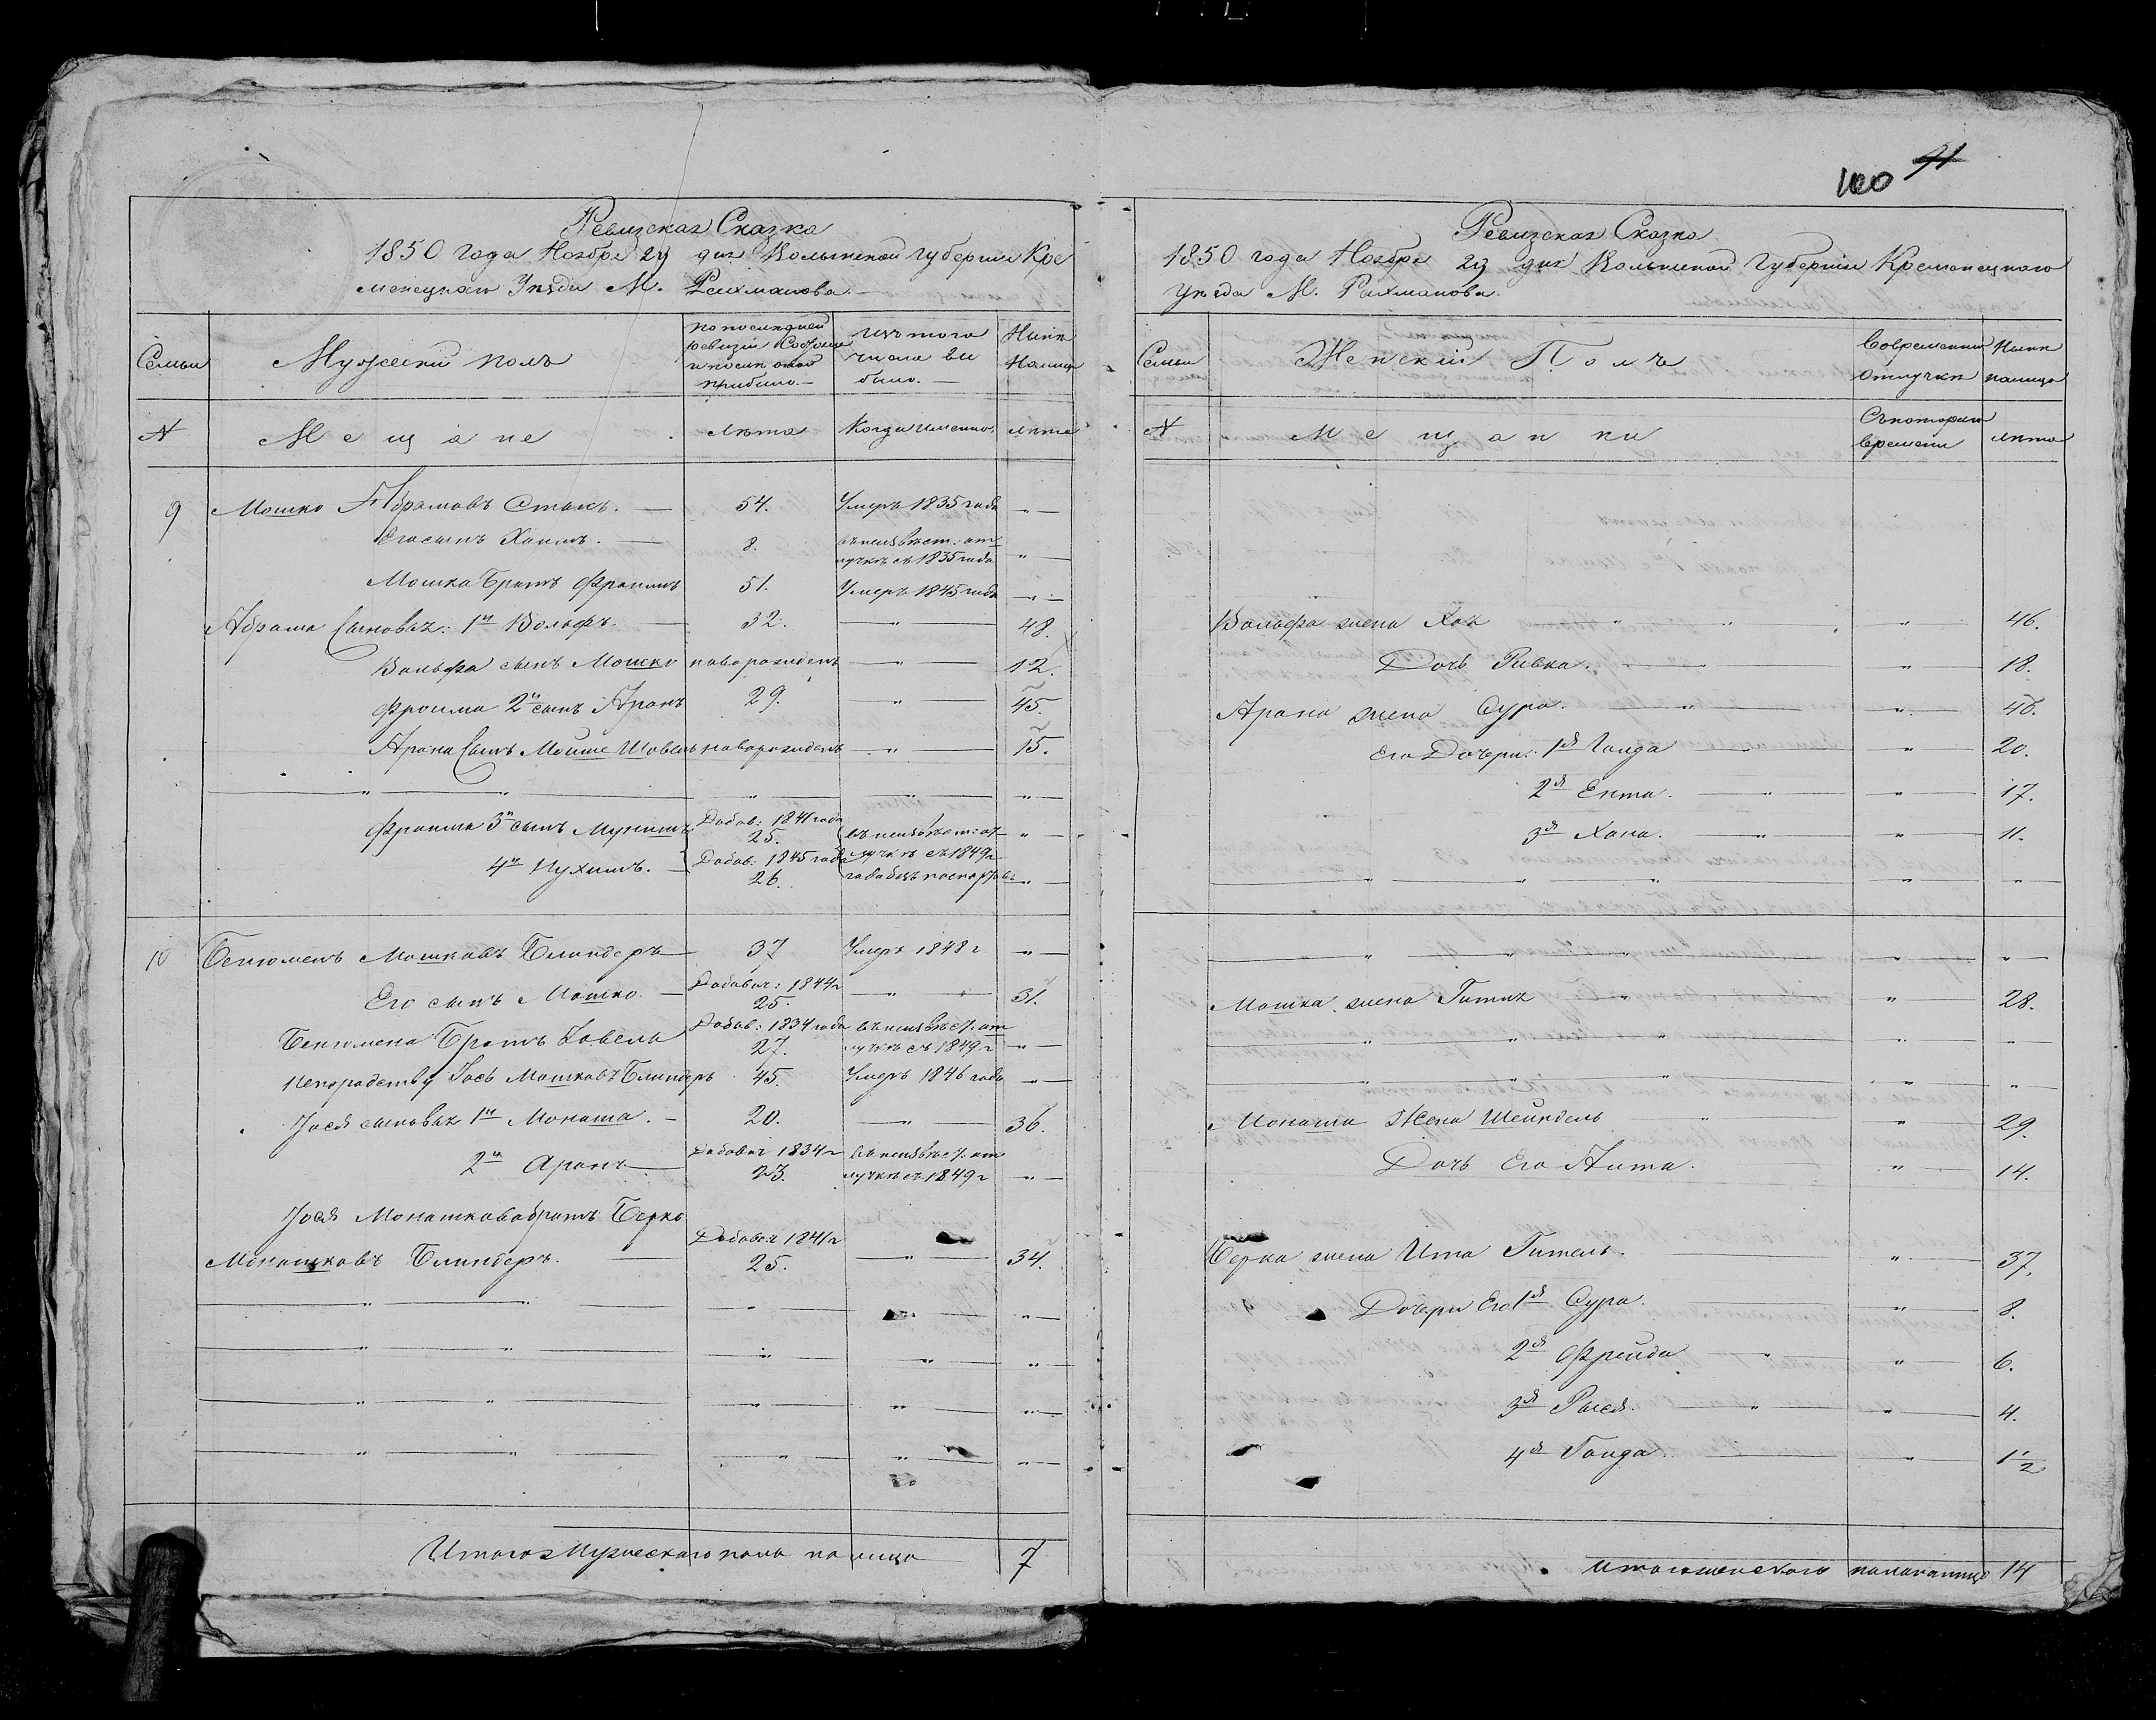 100 91
Ревизская Сказка
1850 года Ноября 23 дня Волынской Губернии Кре
менецкаго Уѣзда М. Рахманова.
Семьи
Мужески полъ
По послѣдней
ревизіи Состояло
и послѣ оной
прибыло.
Изъ того
числа вы
было.
Нынѣ
На лицо
N
Мещане
Лѣта
Когда именно.
Лѣта
9 Мошко Абрамовъ Стакъ. 54. Умеръ 1835 года „
Его сынъ Хаимъ. 8. въ неизвѣст: от
лучкѣ съ 1835 года „
Мошка Братъ Фроимъ 51. Умеръ 1845 года „
Абрама Сыновья: 1й Вольфъ. 32. „ 48.
Вольфа сынъ Мошко новорожденъ „ 12.
Фроима 2й сынъ Аронъ 29. „ 45.
Арона Сынъ Мойше Шовель новорожденъ „ 15.
„ „ „ „ „
Фроима 3й сынъ Добав: 1841 года
25. въ неизвѣст: от „
4й Нухимъ. Добав: 1845 года лучкѣ съ 1849
26. года безъ паспортовъ „
10 Бенюменъ Мошковъ Блиндеръ 37 Умеръ 1848 г „
Его сынъ Мошко. Добавоч: 1844 г
25. „ 31.
Бенюмена Братъ Ковель Добав: 1834 года въ неизвѣст. от
27. лучкѣ съ 1849 г „
Непорадству Іось Мошковъ Блиндеръ 45. Умеръ 1846 года „
Іося сыновья 1й Монаша. 20. „ 36.
2й Аронъ Добавоч 1834 г въ неизвѣст. от
23. лучкѣ съ 1849 г „
Іося Монашкова братъ Берко
Монашковъ Блиндеръ. Добавоч 1841 г
25. „ 34.
„ „ „ „ „
„ „ „ „ „
„ „ „ „ „
„ „ „ „ „
Итого Мужескаго пола на лицо 7
Ревизская Сказка
1850 года Ноября 23 дня Волынской Губерніи Кременецкаго
Уѣзда М. Рахманова.
Семьи
Женскій Полъ
Во временной
отлучкѣ
Нынѣ
на лицо
N
Мещанки
Съ котораго
времени
Лѣта
Вольфа жена Хая „ „ „ 46.
Дочь Ривка. „ „ 18.
Арона жена Сура. „ „ 46.
Его Дочери: 1я Гольда „ 20.
2я Ента. „ „ 17.
3я Хана. „ „ 11.
„ „ „ „ „
„ „ „ „ „
Мошка жена Гитля „ „ 28.
„ „ „ „ „
„ „ „ „ „
Монаша Жена Шейндель „ „ 29.
Дочь Его Гита. „ 14.
Берка жена Ита Гитель. „ 37.
Дочери Его 1я Сура. „ 8.
2я Фрейда „ „ 6.
3я Рыся. „ „ 4.
4я Гольда. „ 1 1/2
Итого женскаго пола на лицо 14